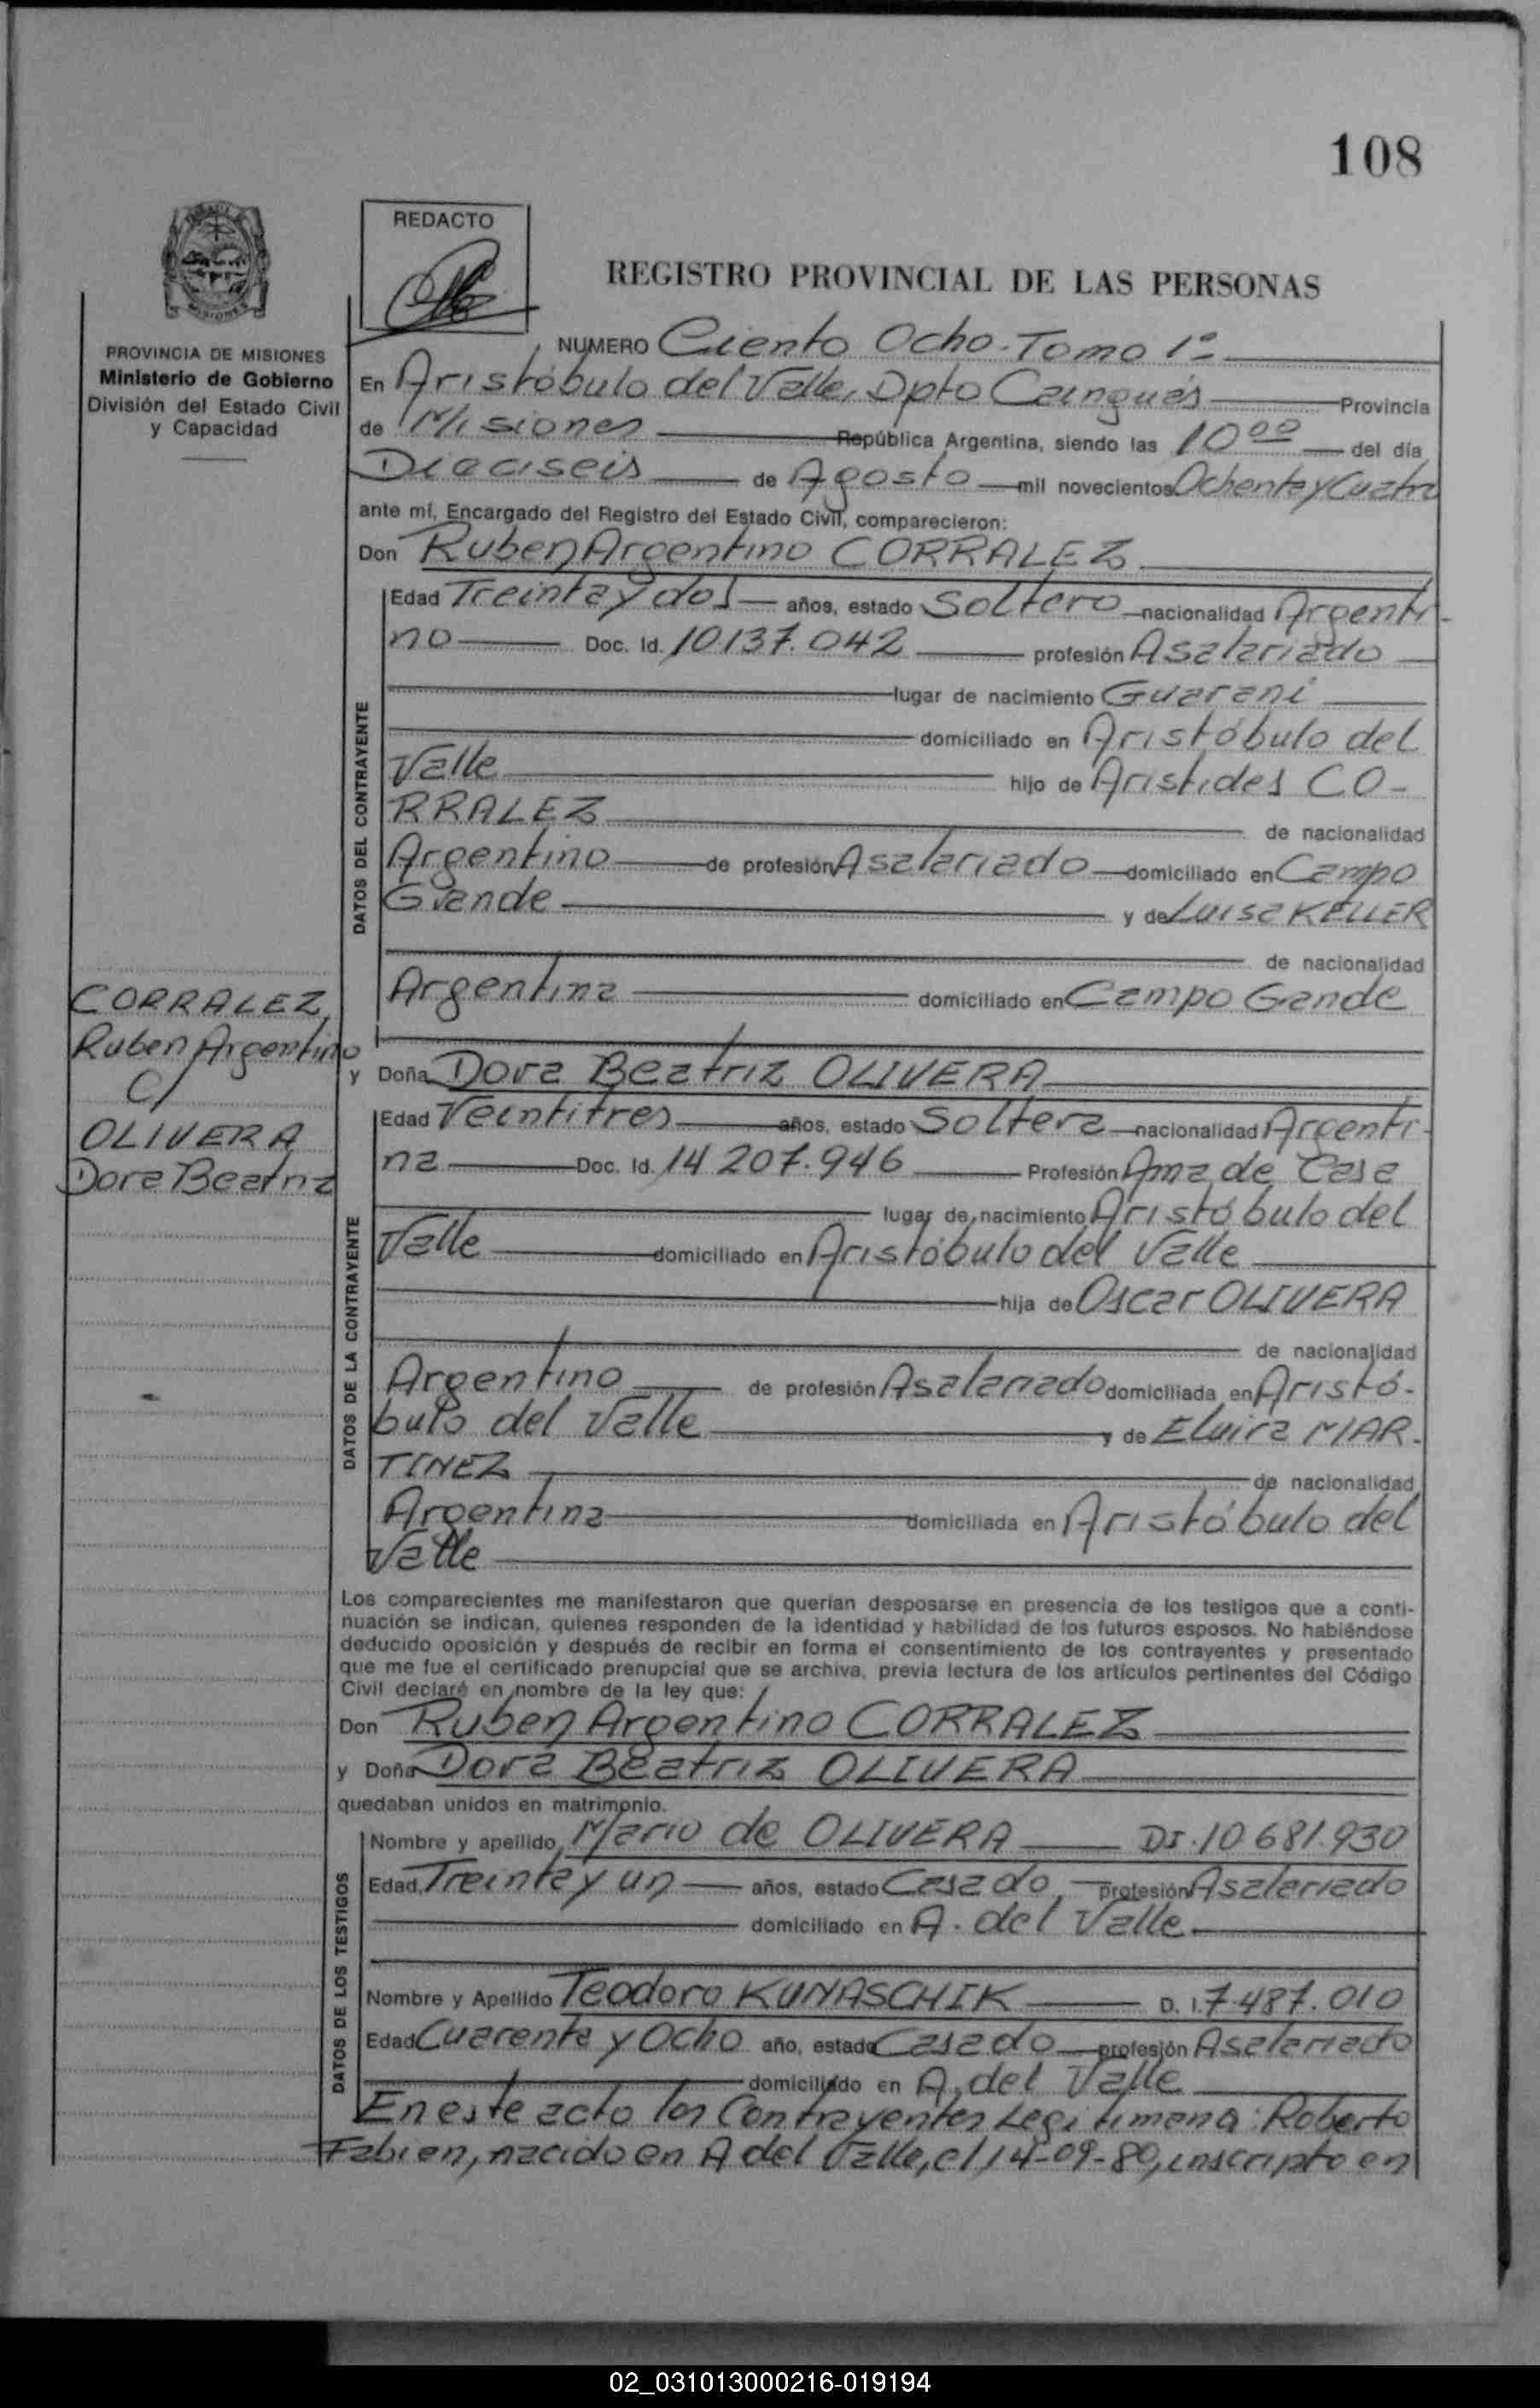 108
REDACTO
REGISTRO PROVINCIAL DE LAS PERSONAS
PROVINCIA DE MISIONES
Ministerio de Gobierno
División del Estado Civil
y Capacidad
NUMERO Ciento Ocho - Tomo 1º
En Aristóbulo del Valle, Dpto Cainguás Provincia
de Misiones República Argentina, siendo las 10 00 del día
Dieciseis de Agosto mil novecientos Ochenta y Cuatro
ante mí, Encargado del Registro del Estado Civil, comparecieron:
Don Ruben Argentino CORRALEZ
DATOS DEL CONTRAYENTE
Edad Treinta y dos años, estado Soltero nacionalidad Argenti-
no Doc. Id. 10.137.042 profesión Asalariado
lugar de nacimiento Guaraní
domiciliado en Aristóbulo del
Valle hijo de Aristides CO-
RRALEZ de nacionalidad
Argentino de profesión Asalariado domiciliado en Campo
Grande y de Luisa KELLER
de nacionalidad
Argentina domiciliado en Campo Gande
CORRALEZ,
Ruben Argentino
C/
OLIVERA
Dora Beatriz
y Doña Dora Beatriz OLIVERA
DATOS DE LA CONTRAYENTE
Edad Veintitres años, estado Soltera nacionalidad Argenti-
na Doc. Id. 14.207.946 Profesión Ama de Casa
lugar de nacimiento Aristóbulo del
Valle domiciliado en Aristóbulo del Valle
hija de Oscar OLIVERA
de nacionalidad
Argentino de profesión Asalariado domiciliada en Aristó-
bulo del Valle y de Elvira MAR-
TINEZ de nacionalidad
Argentina domiciliada en Aristóbulo del
Valle
Los comparecientes me manifestaron que querían desposarse en presencia de los testigos que a conti-
nuación se indican, quienes responden de la identidad y habilidad de los futuros esposos. No habiéndose
deducido oposición y después de recibir en forma el consentimiento de los contrayentes y presentado
que me fue el certificado prenupcial que se archiva, previa lectura de los artículos pertinentes del Código
Civil declaré en nombre de la ley que:
Don Ruben Argentino CORRALEZ
y Doña Dora Beatriz OLIVERA
quedaban unidos en matrimonio.
DATOS DE LOS TESTIGOS
Nombre y apellido Mario de OLIVERA DI. 10.681.930
Edad Treinta y un años, estado Casado profesión Asalariado
domiciliado en A. del Valle
Nombre y Apellido Teodoro KUNASCHIK D. I. 7.487.010
Edad Cuarenta y Ocho año, estado Casado profesión Asalariado
domiciliado en A. del Valle
En este acto los Contrayentes Legitiman a: Roberto
Fabian, nacido en A del Valle, el 14-09-80, inscripto en
02_031013000216-019194